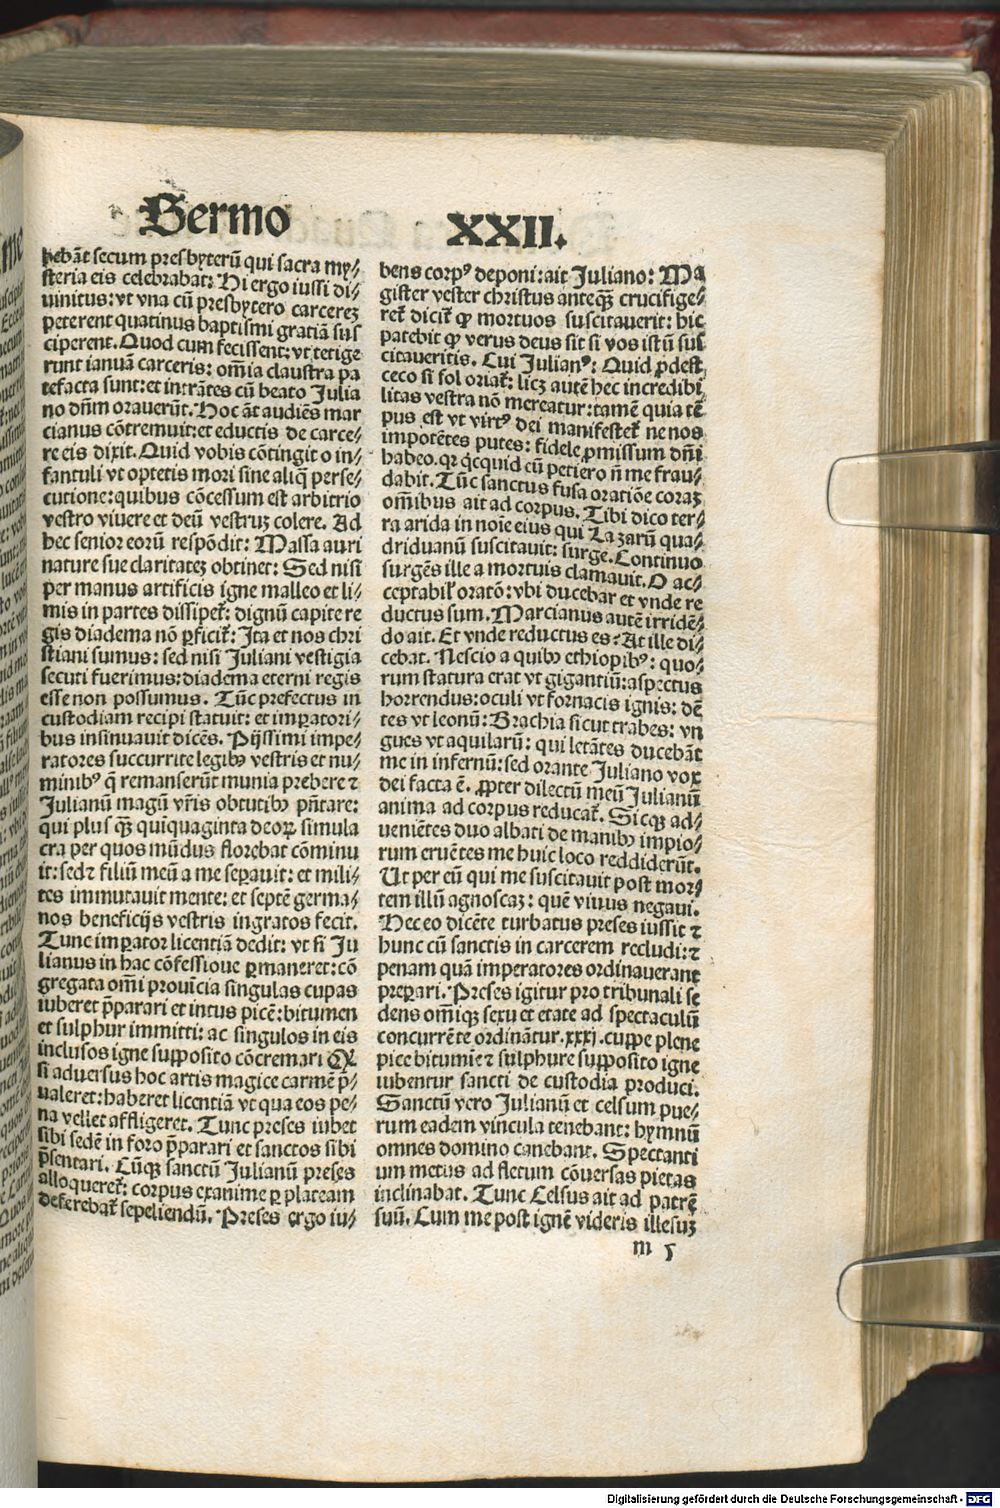 Sermo XXII.
hebãt secum presbyterũ qui sacra my⸗
steria eis celebrabat: Hi ergo iussi di⸗
uinitus: vt vna cũ presbytero carcereȝ
peterent quatinus baptismi gratiã sus
ciperent. Quod cum fecissent: vt tetige
runt ianuã carceris: om̃ia claustra pa
tefacta sunt: et intrãtes cũ beato Julia
no dñm orauerũt. Hoc ãt audiẽs mar
cianus cõtremuit: et eductis de carce⸗
re eis dixit. Quid vobis cõtingit o in⸗
fantuli vt optetis mori sine aliq̃ perse⸗
cutione: quibus cõcessum est arbitrio
vestro viuere et deũ vestruȝ colere. Ad
hec senior eorũ respõdit: Massa auri
nature sue claritateȝ obtinet: Sed nisi
per manus artificis igne malleo et li⸗
mis in partes dissipet᷑: dignũ capite re
gis diadema nõ ꝑficit᷑: Ita et nos chri
stiani sumus: sed nisi Juliani vestigia
secuti fuerimus: diadema eterni regis
esse non possumus. Tũc prefectus in
custodiam recipi statuit: et imꝑatori⸗
bus insinuauit dicẽs. Pijssimi impe⸗
ratores succurrite legibꝰ vestris et nu⸗
minibꝰ q̃ remanserũt munia prebere ⁊
Julianũ magũ vr̃is obtutibꝰ pñtare:
qui plus q̃ȝ quinquaginta deoꝝ simula
cra per quos mũdus florebat cõminu
it: sed ⁊ filiũ meũ a me seꝑauit: et mili⸗
tes immutauit mente: et septẽ germa⸗
nos beneficijs vestris ingratos fecit.
Tunc imꝑator licentiã dedit: vt si Ju
lianus in hac cõfessione ꝑmaneret: cõ
gregata om̃i prouicia singulas cupas
iuberet p̃parari et intus picẽ: bitumen
et sulphur immitti: ac singulos in eis
inclusos igne suꝓposito cõcremari Qꝛ
si aduersus hoc artis magice carmẽ p̃⸗
ualeret: haberet licentiã vt qua eos pe⸗
na vellet affligeret. Tunc preses iubet
sibi sedẽ in foro p̃parari et sanctos sibi
p̃sentari. Cũqȝ sanctũ Julianũ preses
alloqueret᷑: corpus exanime ꝑ plateam
deferebat᷑ sepeliendũ. Preses ergo iu⸗
bens corpꝰ deponi: ait Juliano: Ma
gister vester christus anteq̃ȝ crucifige⸗
ret᷑ dicit᷑ ꝙ mortuos suscitauerit: hic
patebit ꝙ verus deus sit si vos istũ sus
citaueritis. Cui Julianꝰ: Quid ꝓdest
ceco si sol oriat᷑: licȝ autẽ hec incredibi
litas vestra nõ mereatur: tamẽ quia tẽ
pus est vt virtꝰ dei manifestet᷑ ne nos
impotẽtes putes: fidele ꝓmissum dñi
habeo. qꝛ q̇cquid cũ petiero ñ me frau⸗
dabit. Tũc sanctus fusa oratiõe coraȝ
om̃ibus ait ad corpus. Tibi dico ter⸗
ra arida in noĩe eius qui Lazarũ qua⸗
driduanũ suscitauit: surge. Continuo
surgẽs ille a mortuis clamauit. O ac⸗
ceptabil᷑ oratõ: vbi ducebar et vnde re
ductus sum. Marcianus autẽ irridẽ⸗
do ait. Et vnde reductus es: At ille di⸗
cebat. Nescio a quibꝰ ethiopibꝰ: quo⸗
rum statura erat vt gigantiũ: aspectus
horrendus: oculi vt fornacis ignis: dẽ
tes vt leonũ: Brachia sicut trabes: vn
gues vt aquilarũ: qui letãtes ducebãt
me in infernũ: sed orante Juliano vox
dei facta ẽ. ꝓpter dilectũ meũ Julianũ
anima ad corpus reducat᷑. Sicqȝ ad⸗
ueniẽtes duo albati de manibꝰ impio⸗
rum eruẽtes me huic loco reddiderũt.
Ut per eũ qui me suscitauit post mor⸗
tem illũ agnoscaȝ: quẽ viuus negaui.
Hec eo dicẽte turbatus preses iussit ⁊
hunc cũ sanctis in carcerem recludi: ⁊
penam quã imperatores ordinauerant
preꝑari. Preses igitur pro tribunali se
dens om̃iqȝ sexu et etate ad spectaculũ
concurrẽte ordinãtur .xxxj. cuppe plene
pice bitumie ⁊ sulphure suꝓposito igne
iubentur sancti de custodia produci.
Sanctũ vero Julianũ et celsum pue⸗
rum eadem vincula tenebant: hymnũ
omnes domino canebant. Spectanti
um metus ad fletum cõuersas pietas
inclinabat. Tunc Celsus ait ad patrẽ
suũ. Cum me post ignẽ videris illesuȝ
m 5
Digitalisierung gefördert durch die Deutsche Forschungsgemeinschaft - DFG